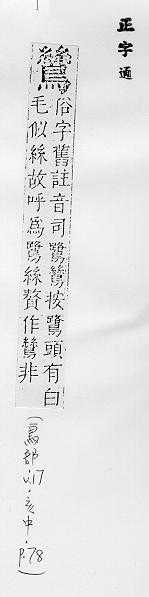 正字通
鷥
俗字舊註音司鷺鷥按鷺頭有白
毛似絲故呼為鷺絲贅作鷥非
(鳥部.17.亥中.p.78)